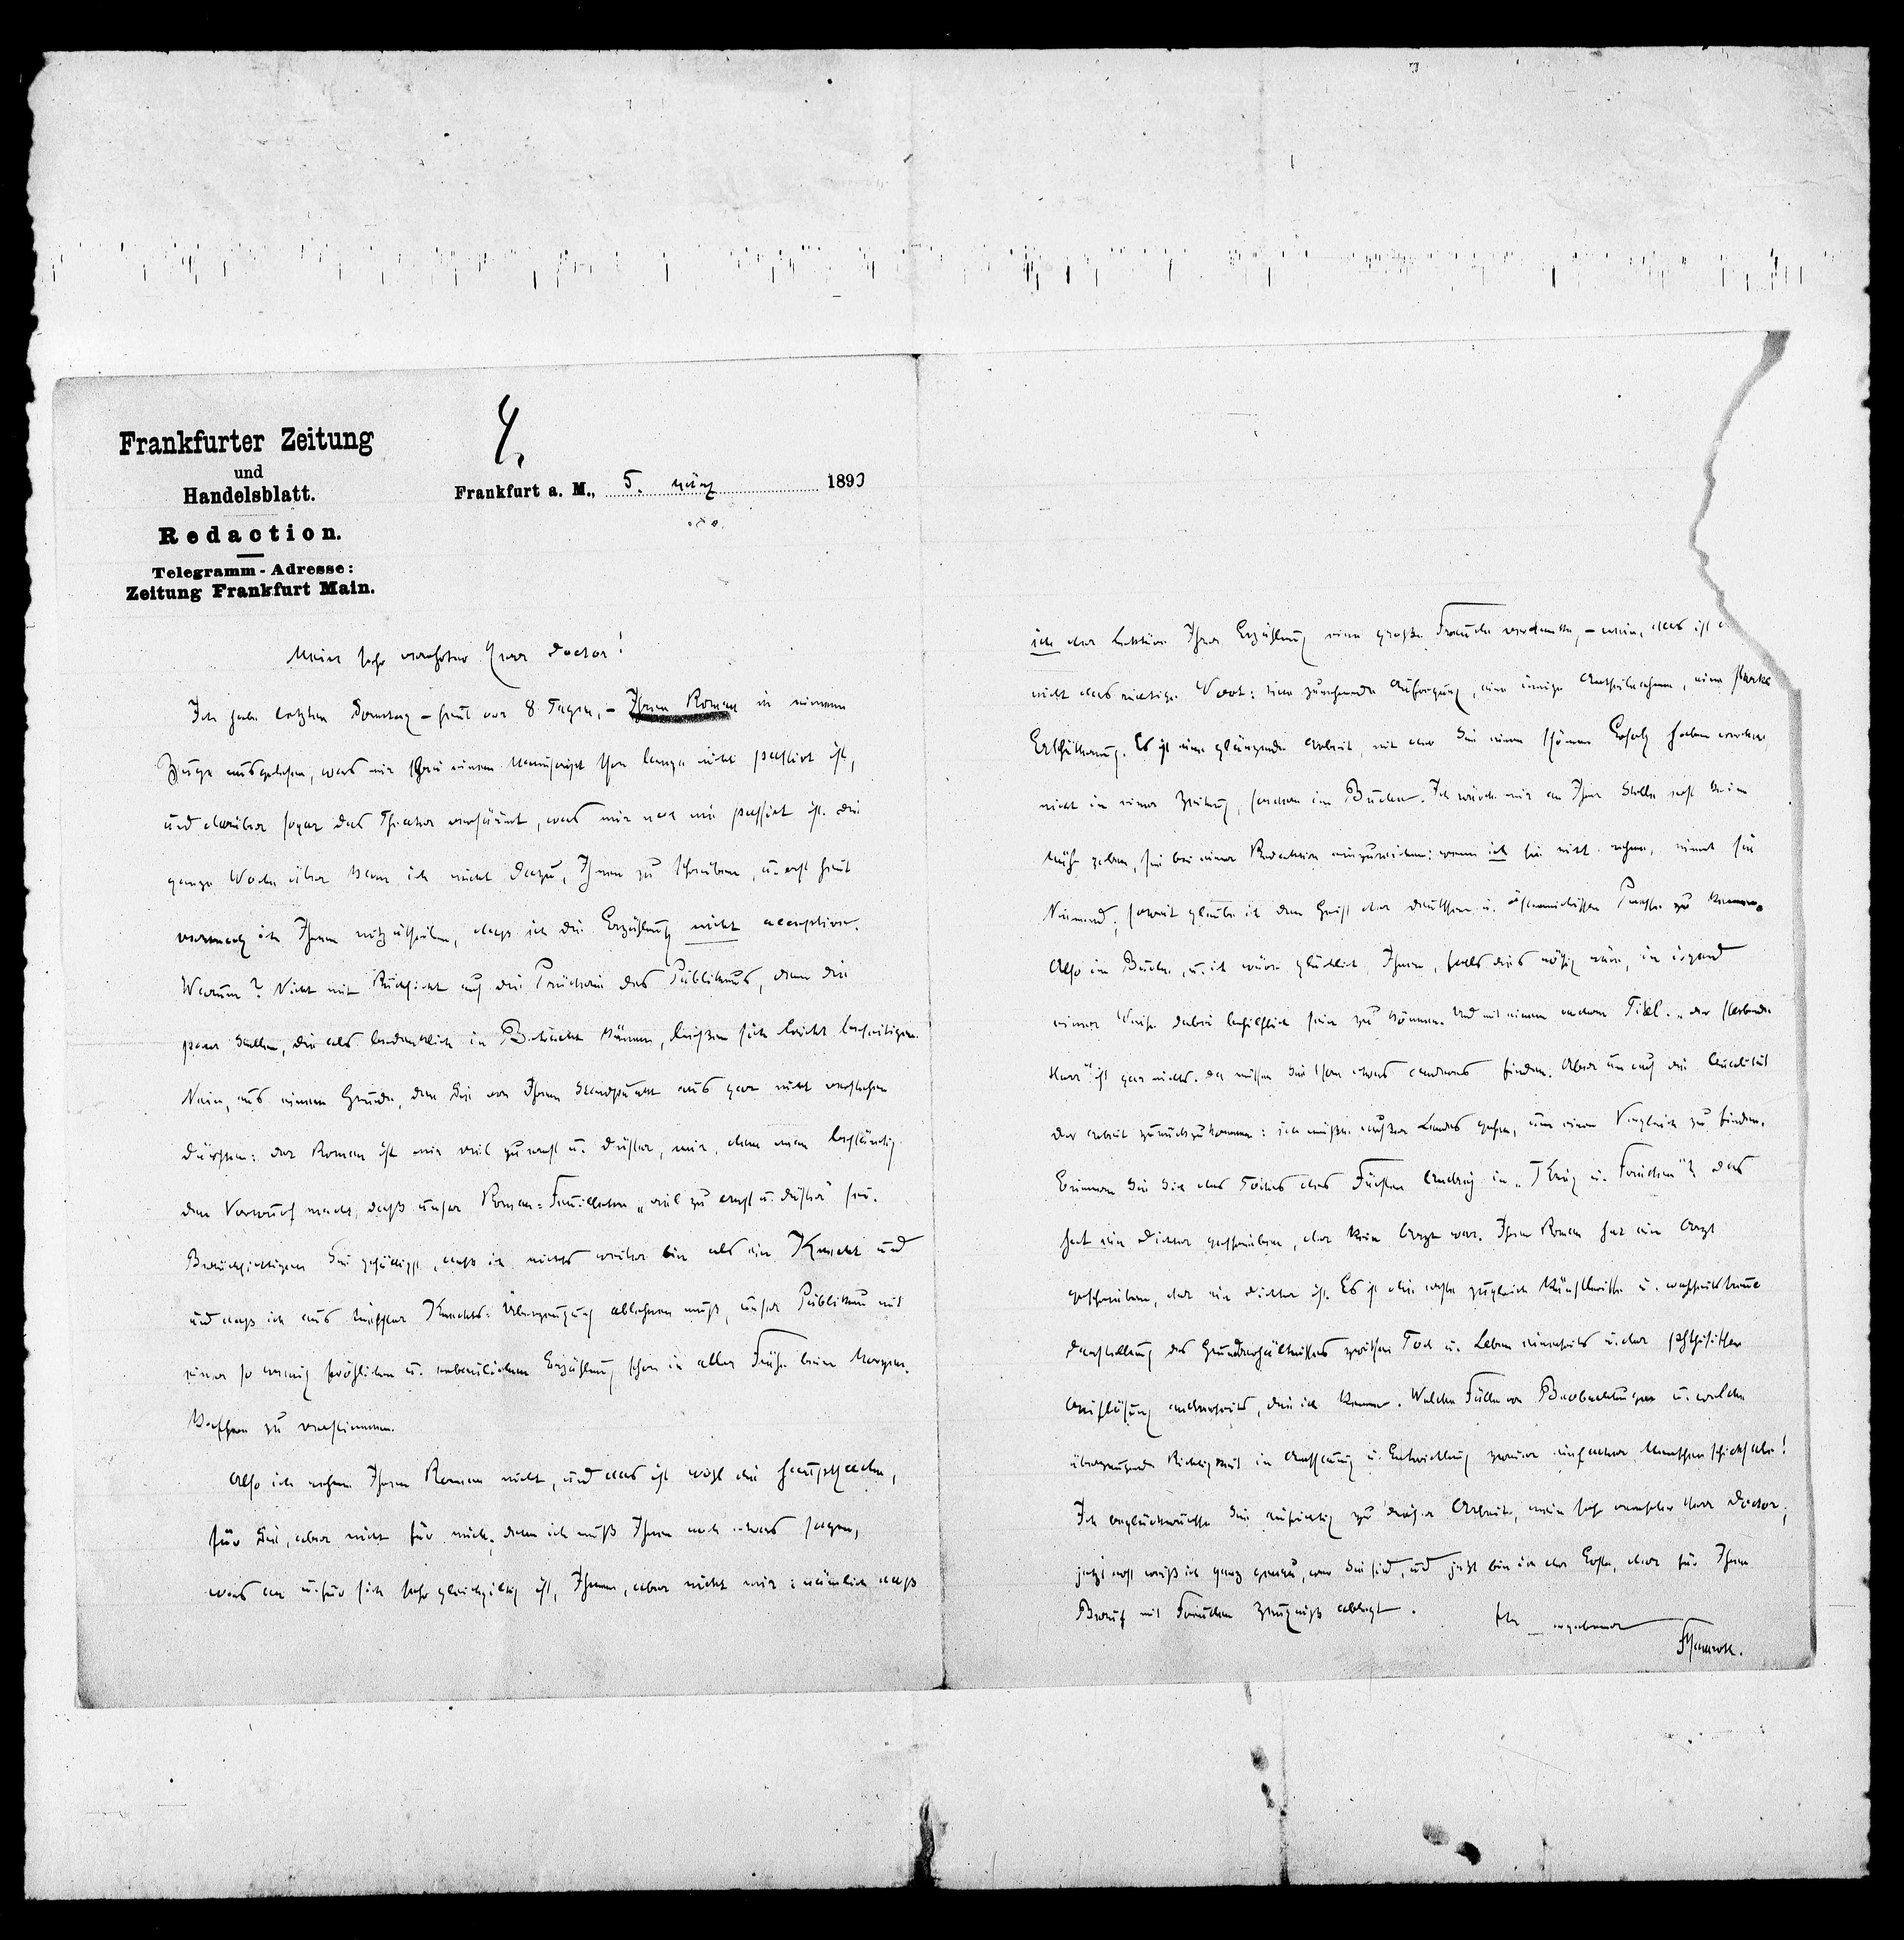 4.
Frankfurter Zeitung
und
Handelsblatt.
Redaction.
Telegramm-Adresse:
Zeitung Frankfurt Main.
Frankfurt a. M., 5. März 1893
Mein sehr verehrter Herr Doctor!
Ich habe letzten Sonntag – heut vor 8 Tagen, – Ihren Roman in einem
Zuge ausgelesen, was mir bei einem Manuscript schon lange nicht passirt ist,
und darüber sogar das Theater versäumt, was mir noch nie passirt ist. Die
ganze Woche über kam ich nicht dazu, Ihnen zu schreiben, u. erst heut
vermag ich Ihnen mitzutheilen, dass ich die Erzählung nicht acceptire.
Warum? Nicht mit Rücksicht auf die Prüderie des Publikums, denn die
paar Stellen, die als bedenklich in Betracht kämen, ließen sich leicht beseitigen.
Nein, aus einem Grunde, den Sie von Ihrem Standpunkt aus gar nicht verstehen
dürften: der Roman ist mir viel zu ernst u. düster, mir, dem man beständig
den Vorwurf macht, daß unser Roman-Feuilleton „viel zu ernst u. düster“ sei.
Berücksichtigen Sie gefälligst, daß ich nichts weiter bin als ein Knecht und
und daß ich aus tiefster Knechts-Überzeugung ablehnen muß, unser Publikum mit
einer so wenig fröhlichen u. erbaulichen Erzählung schon in aller Frühe beim Morgen-
kaffee zu verstimmen.
Also ich nehme Ihren Roman nicht, und das ist wohl die Hauptsache,
für Sie, aber nicht für mich, denn ich muß Ihnen noch etwas sagen,
was an u. für sich sehr gleichgiltig ist, Ihnen, aber nicht mir: nämlich daß
ich der Lektüre Ihrer Erzählung eine große Freude verdanke, – nein, das ist
nicht das richtige Wort: eine zunehmende Aufregung, eine innige Antheilnahme, eine starke
Erschütterung. Es ist eine glänzende Arbeit, mit der Sie einen schönen Erfolg haben werden
nicht in einer Zeitung, sondern im Buche. Ich würde mir an Ihrer Stelle nicht die
Mühe geben, sie bei einer Redaktion einzureichen: wenn ich sie nicht nehme, nimmt sie
Niemand; soweit glaube ich den Geist der deutschen u. österreichischen Presse zu kennen.
Also im Buche, u. ich wäre glücklich Ihnen, falls dies nöthig wäre, in irgend
einer Weise dabei behilflich sein zu können. Und mit einem andern Titel. „Der sterbende
Herr“ ist gar nichts. Da müssen Sie schon etwas anderes finden. Aber um auf die Qualität
der Arbeit zurückzukommen: ich müßte außer Landes gehen, um einen Vergleich zu finden.
Erinnern Sie sich des Todes des Fürsten Andrej in „Krieg u. Frieden“? Das
hat ein Dichter geschrieben, der kein Arzt war. Ihren Roman hat ein Arzt
geschrieben, der ein Dichter ist. Es ist die erste zugleich künstlerische u. wahrheitstreue
Darstellung des Grundverhältnisses zwischen Tod u. Leben einerseits u. der phthisischen
Auflösung andrerseits, die ich kenne. Welche Fülle von Beobachtungen u. welche
überzeugende Richtigkeit in Auffassung u. Entwicklung zweier einfacher Menschenschicksale!
Ich beglückwünsche Sie aufrichtig zu dieser Arbeit, mein sehr verehrter Herr Doctor;
jetzt erst weiß ich ganz genau, wer Sie sind, und jetzt bin ich der Erste, der für Ihren
Beruf mit Freuden Zeugniß ablegt.
Ihr ergebener
FMamroth.